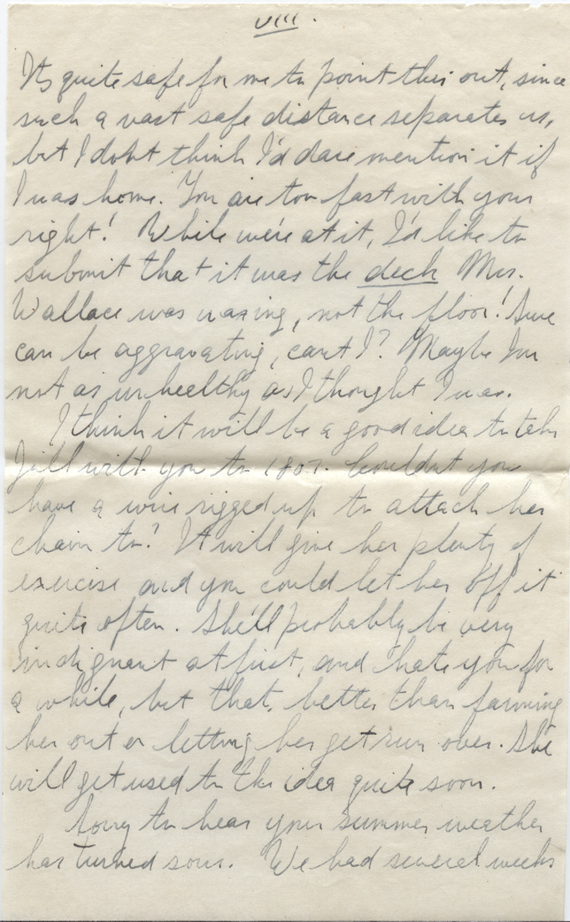 VIII.
Its quite safe for me to point this out, since
such a vast safe distance separates us,
but I dont think I'd dare mention it if
I was home. You are too fast with your
right! While we're at it, I'd like to
submit that it was the deck Mrs.
Wallace was waxing, not the floor! Sure
can be aggravating, cant I? Maybe I'm
not as unhealthy as I thought I was.
I think it will be a good idea to take
Jill with you to 1807. Couldnt you
have a wire rigged up to attach her
chain to? It will give her plenty of
exercise and you could let her off it
quite often. She'll probably be very
indignant at first, and hate you for
a while, but that, better than farming
her out or letting her get run over. She
will get used to the idea quite soon.
Sorry to hear your summer weather
has turned sour. We had several weeks